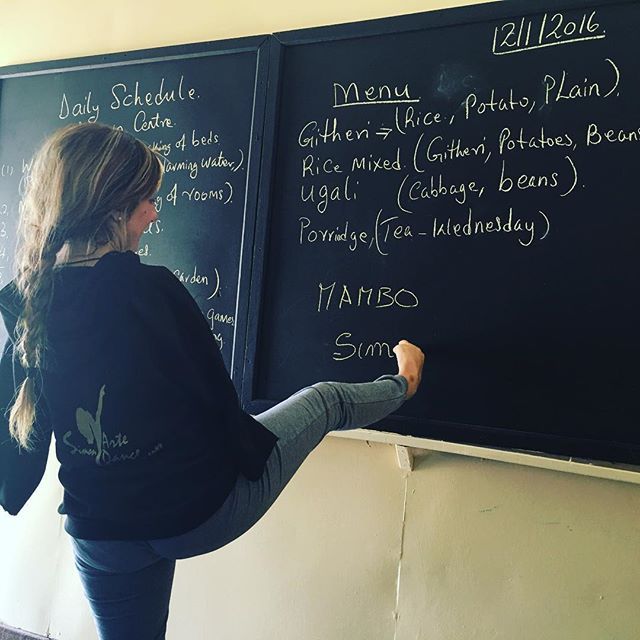 Daily Schedule.
Centre.
of beds
Warming water,).
of rooms)
Garden)
games
12/1/2016.
Menu
Githeri → (Rice., Potato, PLain).
Rice Mixed. (Githeri, Potatoes, Beans
Ugali (Cabbage, beans).
Porridge, (Tea - Wednesday)
MAMBO
Sim
Arte
Dance